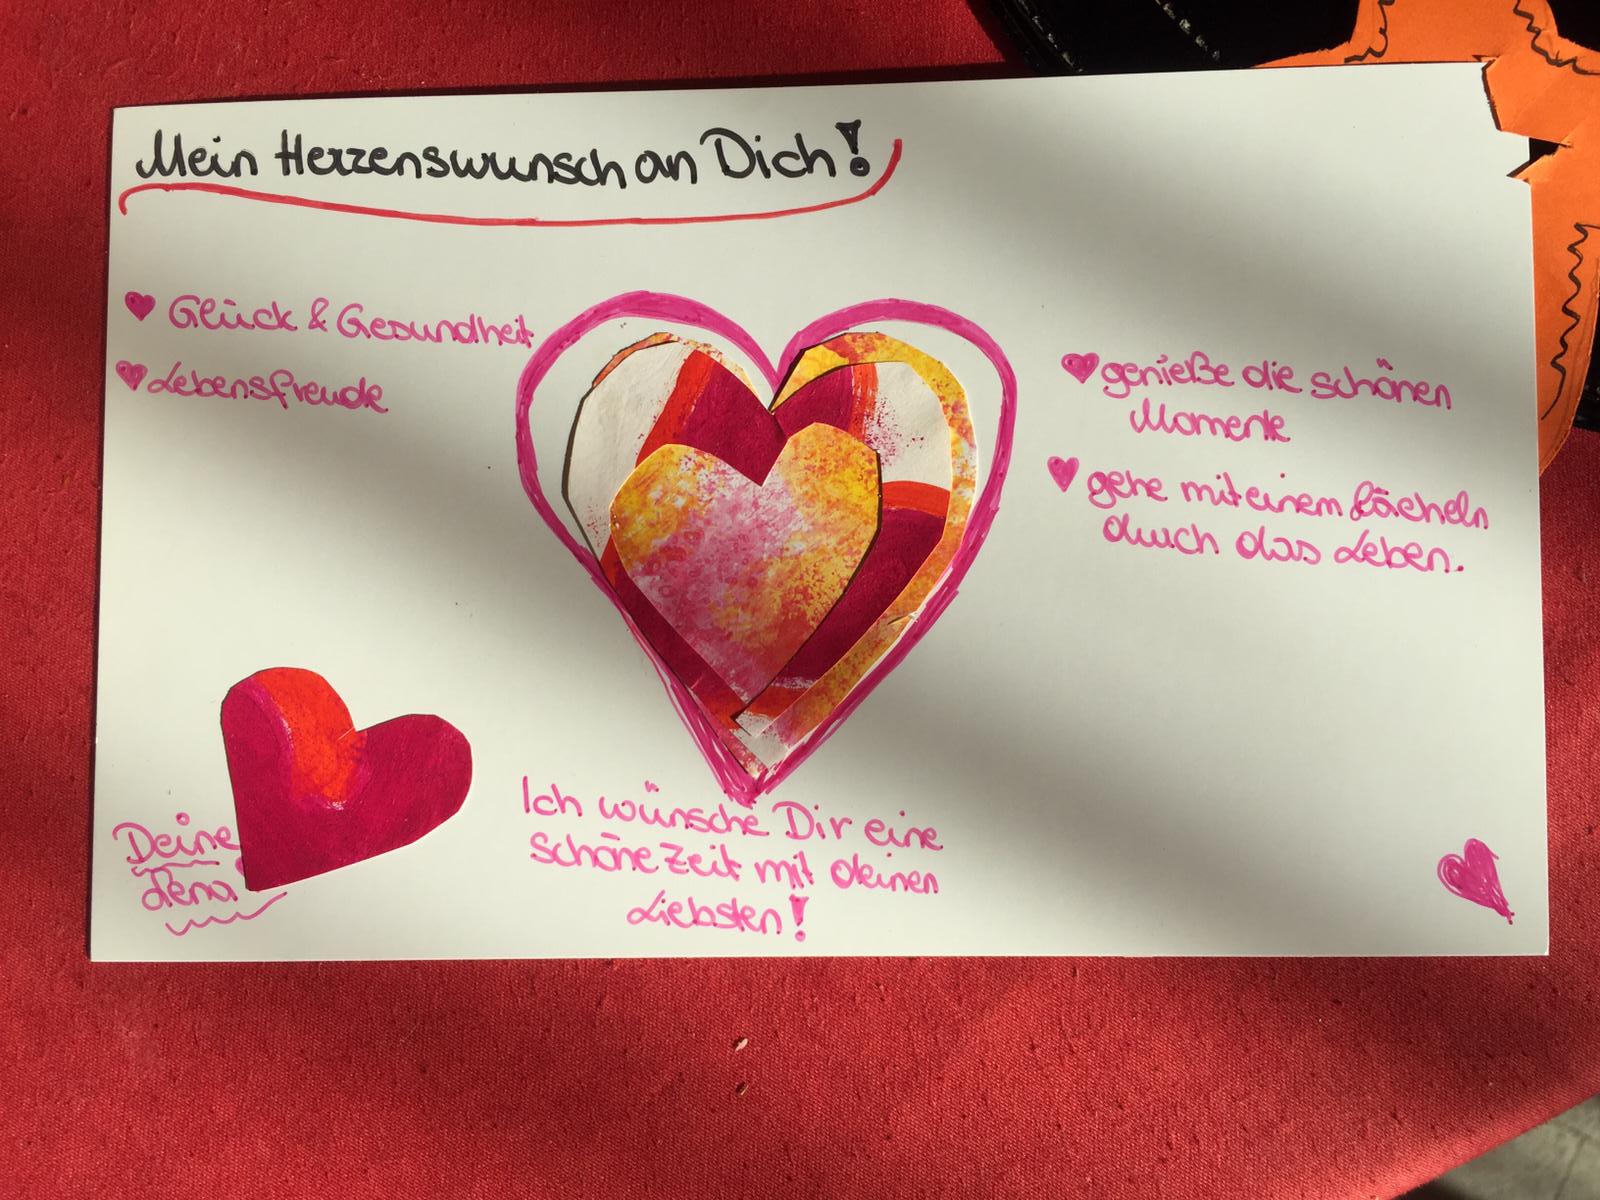 Mein Herzenswunsch an Dich!
Glück & Gesundheit
Lebensfreude
genieße die schönen
Momente
gehe mit einem Lächeln
durch das Leben.
Ich wünsche Dir eine
schöne Zeit mit deinen
Liebsten!
Deine
Lena